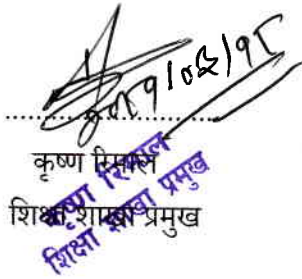 २०८१/०६/१८
कृष्ण रिमाल
शिक्षा शाखा प्रमुख
कृष्ण रिमाल
शिक्षा शाखा प्रमुख